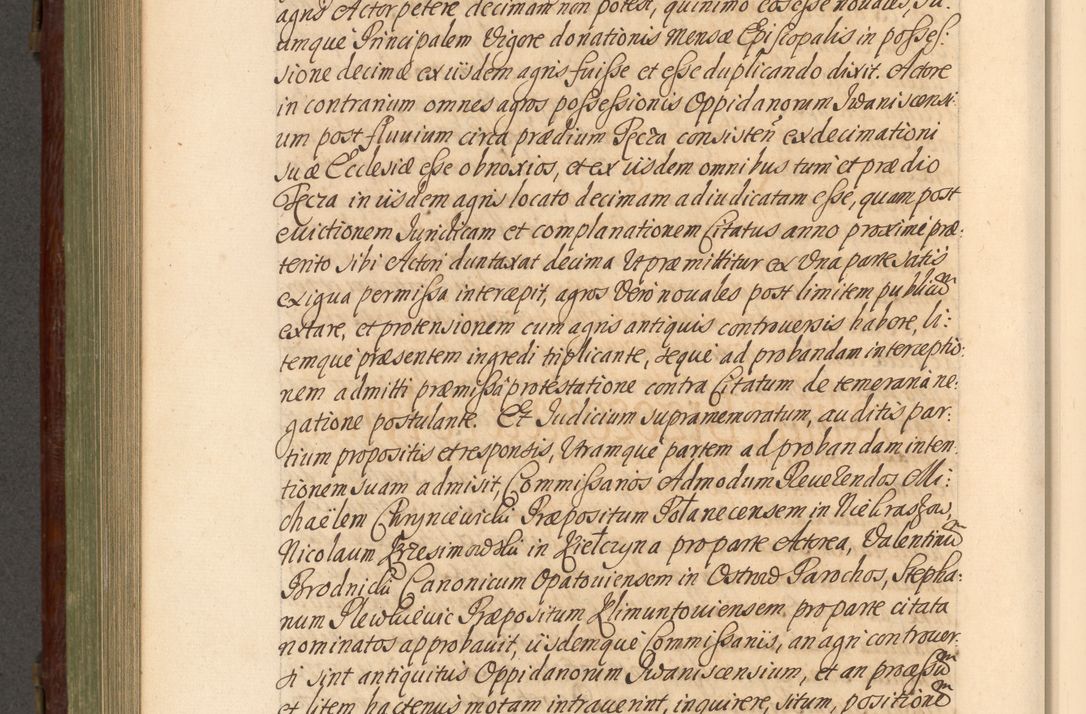 agris Actor petere decimam non potest, quinimo ea esse novales, su:
amque Principalem Vigore donationis Mensæ Episcopalis in posses:
sione decimæ ex iisdem agris fuisse et esse duplicando dixit. Actore
in contrarium omnes agros possessionis Oppidanorum Iwaniscensi:
um post fluvium circa prædium Recza consisteñ ex decimationi
suæ Ecclesiæ esse obnoxios, et ex iisdem omnibus tum et prædio
Recza in iisdem agris locato decimam adiudicatam esse, quam post
evictionem Iuridicam et complanationem Citatus anno proxime præ:
terito sibi Actori duntaxat decima Ut præmittitur ex Una parte satis
exigua permissa intercepit, agros Vero novales post limitem publicũ
extare, et protensionem cum agris antiquis controversis habere, li:
temque præsentem ingredi triplicante, seque ad probandam interceptio:
nem admitti præmissa protestatione contra Citatum de temeraria ne:
gatione postulante. Et Iudicium supramemoratum, auditis par:
tium propositis et responsis, Utramque partem ad probandam inten:
tionem suam admisit, Commissarios Admodum Reverendos Mi:
chaëlem Chryncievicki Præpositum Połanecensem in Niekraszow,
Nicolaum Krzesimowski in Kiełczyna pro parte Actorea, Valentinũ
Brodnicki Canonicum Opatoviensem in Ostrow Parochos, Stepha:
num Plewkievic Præpositum Klimuntoviensem pro parte citata
nominatos approbavit, iisdemque Commissariis, an agri controver:
si sint antiquitus Oppidanorum Iwaniscensium, et an præssũ
et litem hactenus motam intraverint, inquirere, situm, positionẽ